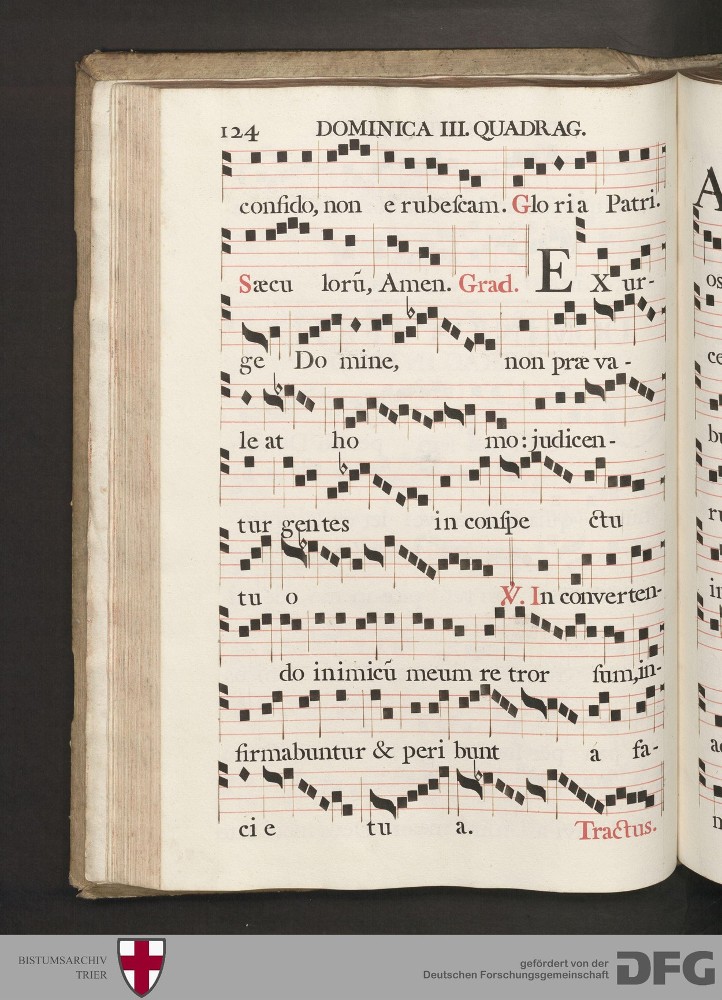 124 DOMINICA III. QUADRAG.
confido, non erubeſcam. Gloria Patri.
Sæculorũ, Amen. Grad. EXur-
ge Domine, non præva-
leat homo: judicen-
tur gentes in conſpectu
tuo ℣. In converten-
do inimicũ meum retrorſum, in-
firmabuntur & peribunt a fa-
cie tua. Tractus.
A
os
ce
BISTUMSARCHIV
TRIER
gefördert von der
Deutschen Forschungsgemeinschaft
DFG